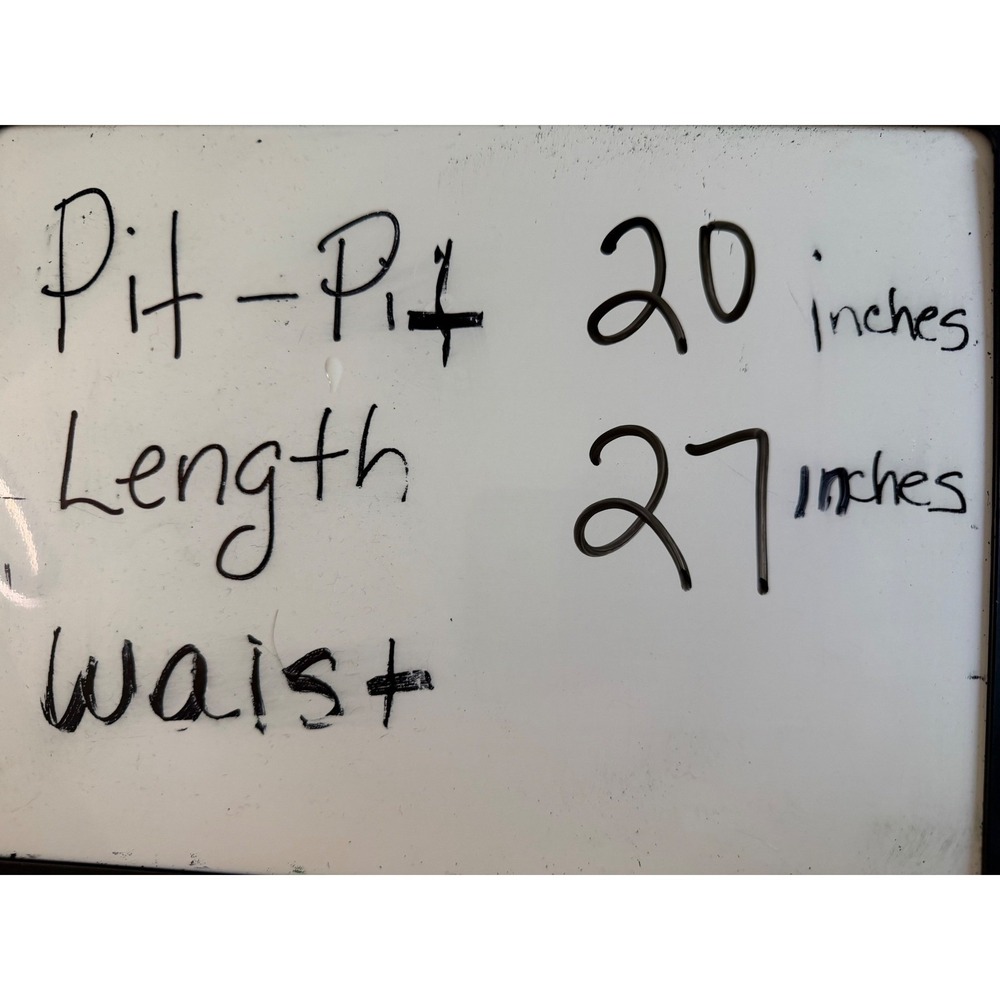 Pit - Pit 20 inches
Length 27 inches
Waist